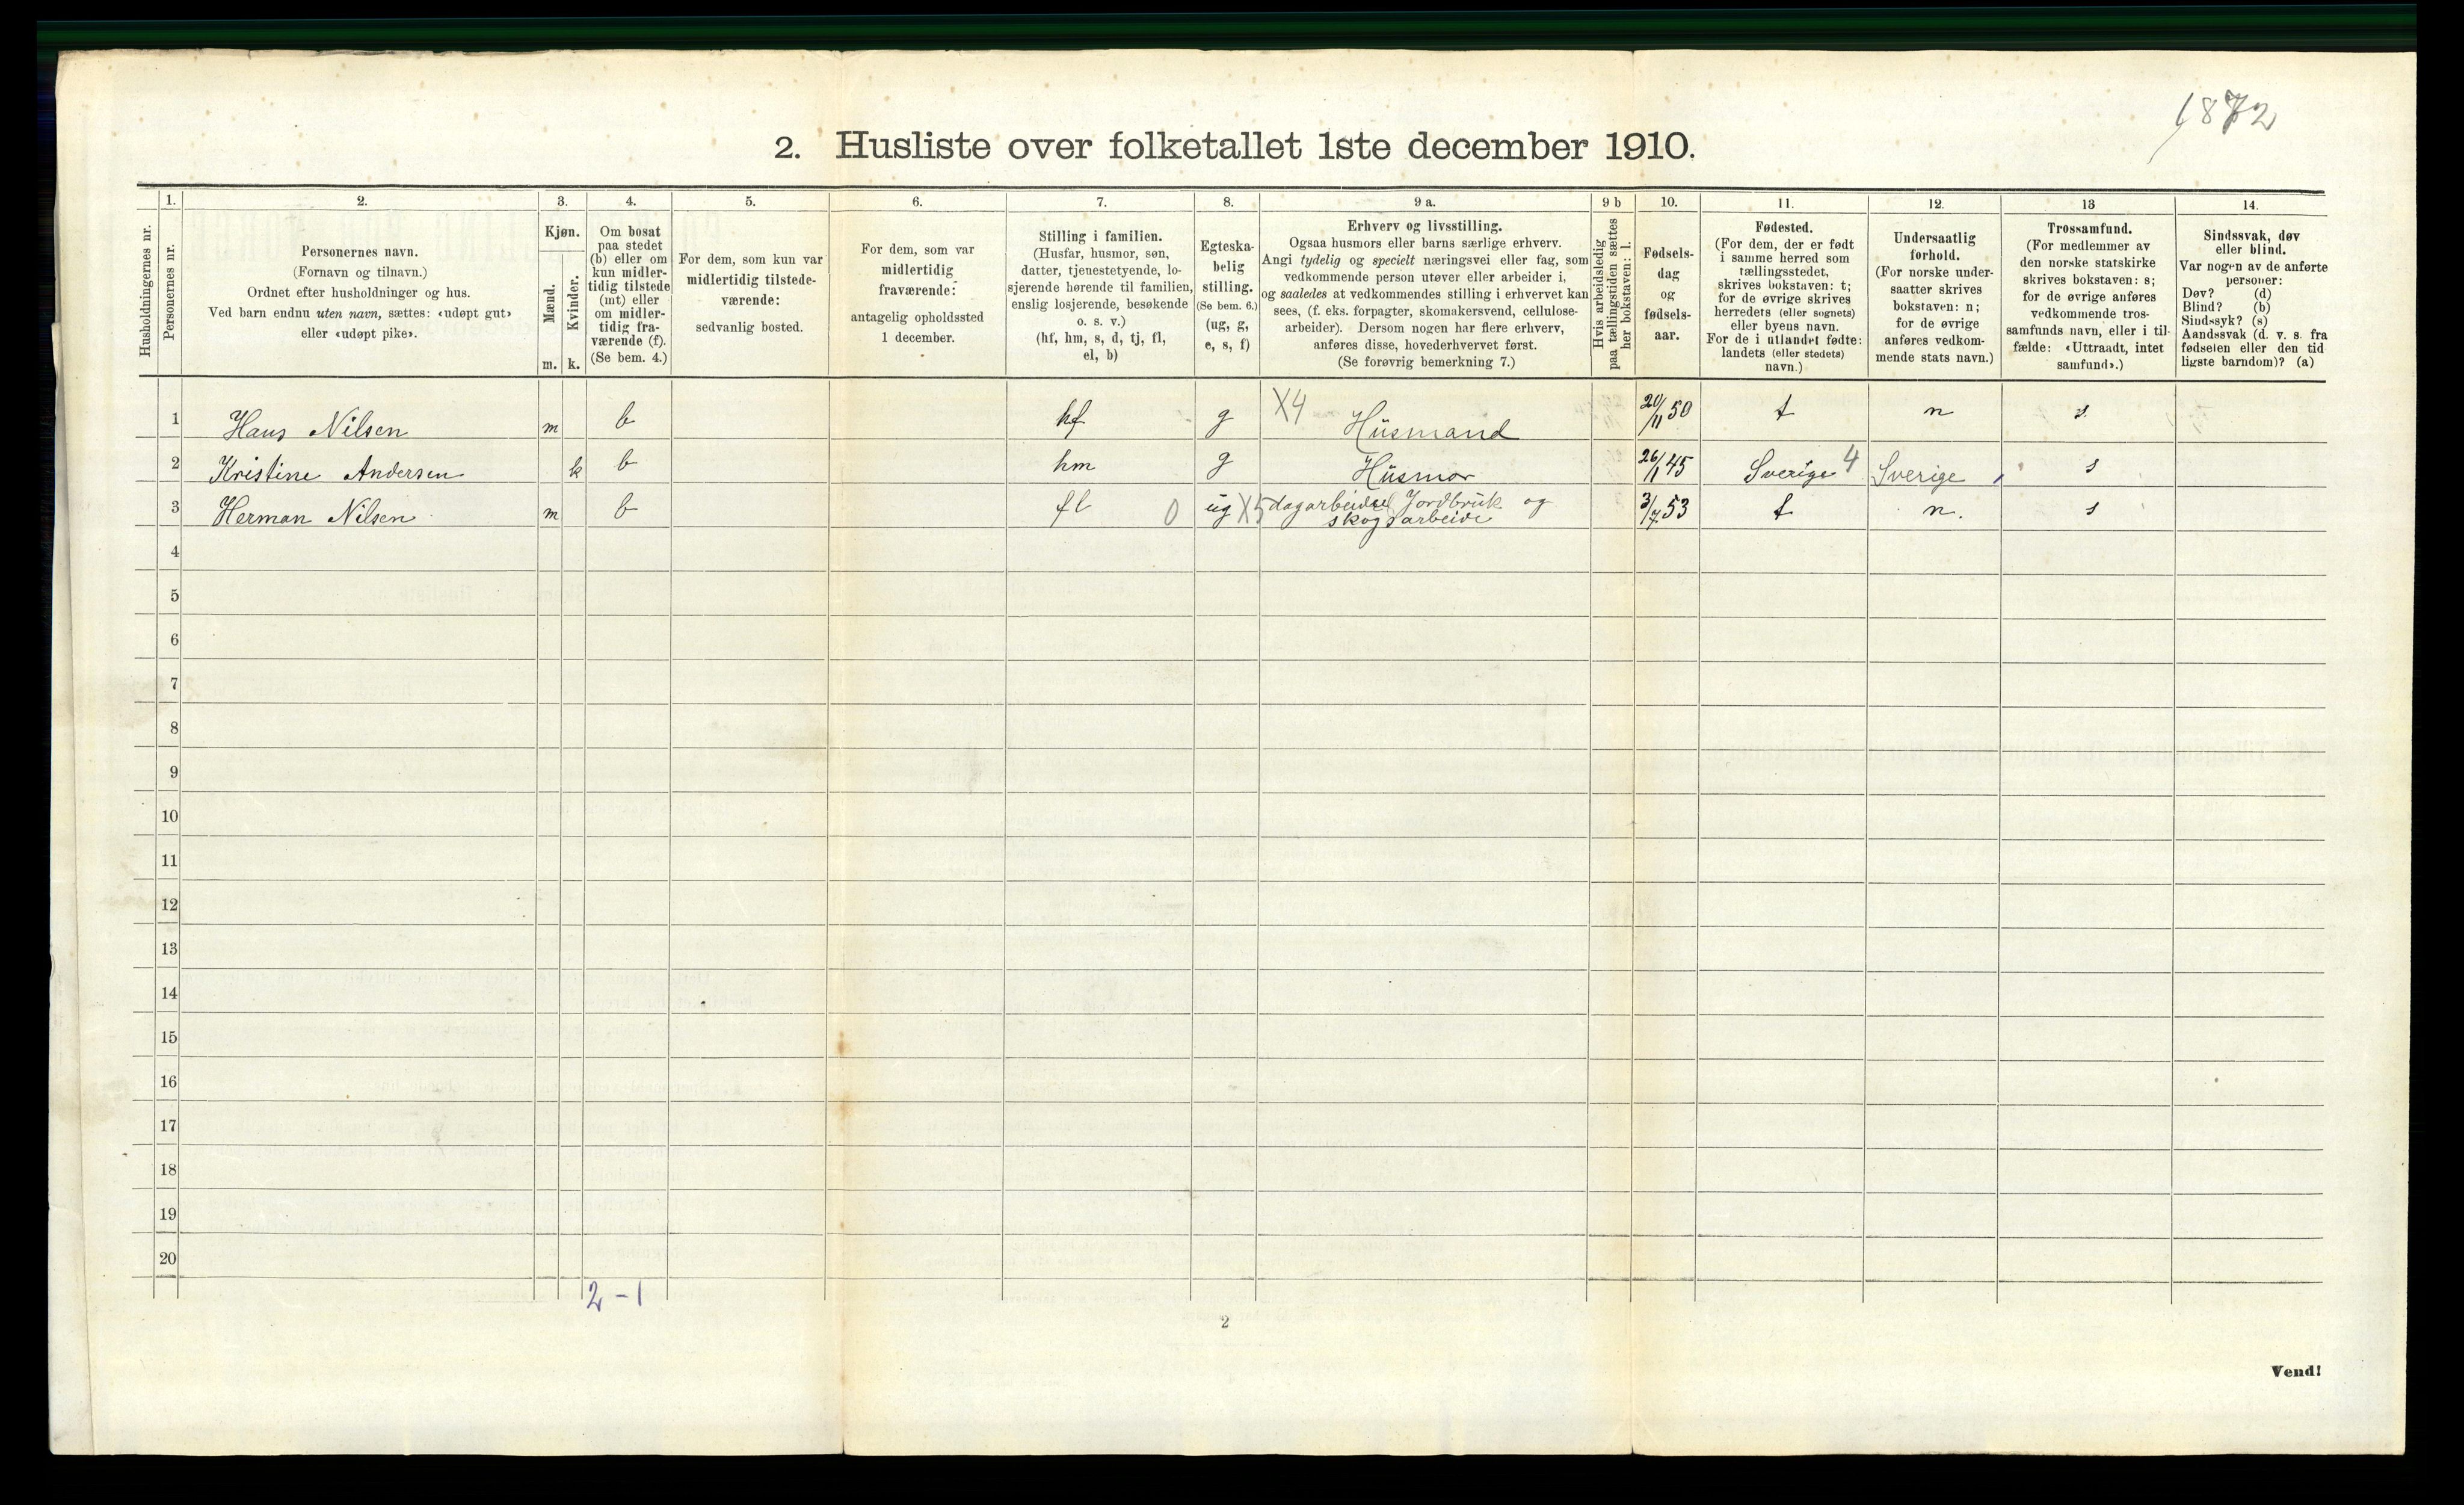 1872
2. Husliste over folketallet 1ste december 1910.
1. 2. 3. 4. 5. 6. 7. 8. 9 a. 9 b 10. 11. 12. 13 14.
Husholdningernes nr.
Personernes nr.
Personernes navn.
(Fornavn og tilnavn.)
Ordnet efter husholdninger og hus.
Ved barn endnu uten navn, sættes: «udøpt gut»
eller «udøpt pike».
Kjøn.
Mænd.
Kvinder.
m. k.
Om bosat
paa stedet
(b) eller om
kun midler-
tidig tilstede
(mt) eller
om midler-
tidig fra-
værende (f).
(Se bem. 4.)
For dem, som kun var
midlertidig tilstede-
værende:
sedvanlig bosted.
For dem, som var
midlertidig
fraværende:
antagelig opholdssted
1 december.
Stilling i familien.
(Husfar, husmor, søn,
datter, tjenestetyende, lo-
sjerende hørende til familien,
enslig losjerende, besøkende
o. s. v.)
(hf, hm, s, d, tj, fl,
el, b)
Egteska-
belig
stilling.
(Se bem. 6.)
(ug, g,
e, s, f)
Erhverv og livsstilling.
Ogsaa husmors eller barns særlige erhverv.
Angi tydelig og specielt næringsvei eller fag, som
vedkommende person utøver eller arbeider i,
og saaledes at vedkommendes stilling i erhvervet kan
sees, (f. eks. forpagter, skomakersvend, cellulose-
arbeider). Dersom nogen har flere erhverv,
anføres disse, hovederhvervet først.
(Se forøvrig bemerkning 7.)
Hvis arbeidsledig
paa tællingstiden sættes
her bokstaven: l.
Fødsels-
dag
og
fødsels-
aar.
Fødested.
(For dem, der er født
i samme herred som
tællingsstedet,
skrives bokstaven: t;
for de øvrige skrives
herredets (eller sognets)
eller byens navn.
For de i utlandet fødte:
landets (eller stedets)
navn.)
Undersaatlig
forhold.
(For norske under-
saatter skrives
bokstaven: n;
for de øvrige
anføres vedkom-
mende stats navn.)
Trossamfund.
(For medlemmer av
den norske statskirke
skrives bokstaven: s;
for de øvrige anføres
vedkommende tros-
samfunds navn, eller i til-
fælde: «Uttraadt, intet
samfund».)
Sindssvak, døv
eller blind.
Var nogen av de anførte
personer:
Døv? (d)
Blind? (b)
Sindssyk? (s)
Aandssvak (d. v. s. fra
fødselen eller den tid
ligste barndom)? (a)
1 Hans Nilsen m b hf g X4 Husmand 20/11 50 t n s
2 Kristine Andersen k b hm g Husmor 26/1 45 Sverige 4 Sverige s
3 Herman Nilsen m b fl 0 ug X5 dagarbeide Jordbruk og
skogsarbeide 3/7 53 t n. s
4
5
6
7
8
9
10
11
12
13
14
15
16
17
18
19
20
2-1
2
Vend!